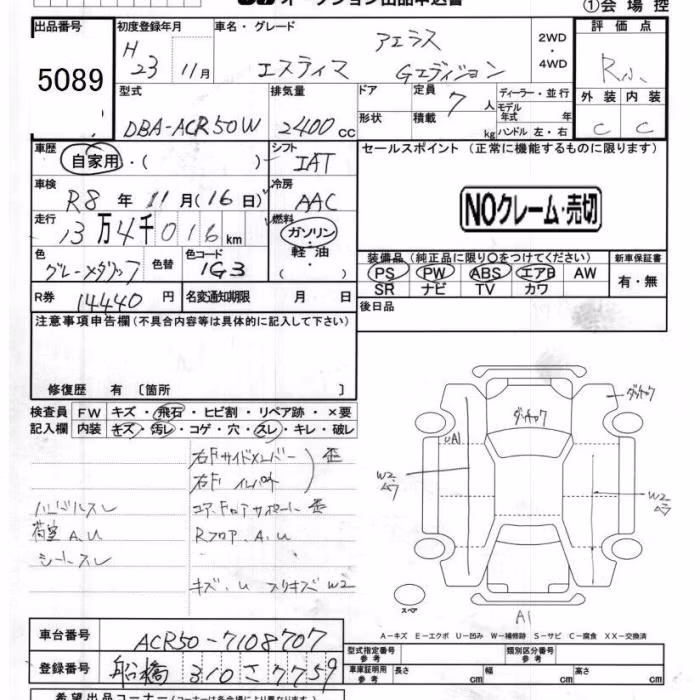 オークション出品申込書
①会場控
出品番号
5089
初度登録年月
H 23 11月
車名・グレード
アエラス
エスティマ Gエディション
2WD
・
4WD
評価点
R小
外装 内装
C C
型式
DBA-ACR50W
排気量
2400cc
ドア
形状
定員 7人
積載 kg
ディーラー・並行
モデル年式 年
ハンドル 左・右
車歴
自家用・( )
シフト
IAT
セールスポイント (正常に機能するものに限ります)
車検
R8年11月(16日)
冷房
AAC
NOクレーム・売切
走行
13万4千016km
燃料
ガソリン
・
軽油
・
( )
色
グレーメタリック
色替
色コード
1G3
装備品 (純正品に限り○をつけてください)
PS PW ABS エアB AW
SR ナビ TV カワ
新車保証書
有・無
R券 14440円
名変通知期限 月 日
後日品
注意事項申告欄 (不具合内容等は具体的に記入して下さい)
修復歴 有 〔箇所 〕
検査員
記入欄
FW キズ・飛石・ヒビ割・リペア跡・×要
内装 キズ・汚レ・コゲ・穴・スレ・キレ・破レ
右Fサイドメンバー 歪
右Fインパネ
コア、Fロアサポート 歪
Rフロア、A、U
キズ、U スリキズ W2
ハンドルスレ
荷室 A、U
シートスレ
UA1
W2
W2
A1
スペア
A−キズ E−エクボ U−凹み W−補修跡 S−サビ C−腐食 XX−交換済
車台番号
ACR50-7108707
登録番号
船橋 310 さ 7759
型式指定番号
参考
類別区分番号
参考
車庫証明用
参考
長さ cm 幅 cm 高さ cm
希望出品コーナー